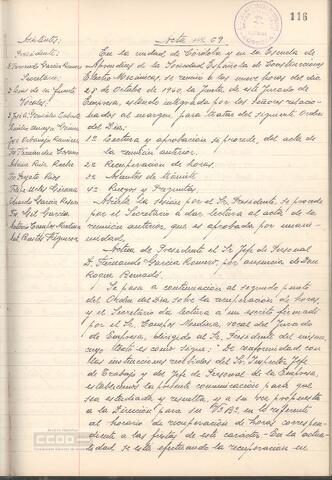 116
Acta nº 69.
Asistentes:
Presidente:
D. Fernando García Romero
Secretario
Vocales:
En la ciudad de Córdoba y en la Escuela de
Aprendices de la Sociedad Española de Construcciones
Electro Mecánicas, se reunió a las nueve horas del día
28 de Octubre de 1960, la Junta de este Jurado de
Empresa, estando integrada por los Señores relacio-
nados al margen, para tratar del siguiente Orden
del Día:
1º Lectura y aprobación si procede, del acta de
la reunión anterior.
2º Recuperación de horas.
3º Asuntos de trámite
4º Ruegos y Preguntas.
Abierta la sesión por el Sr. Presidente, se procede
por el Secretario a dar lectura al acta de la
reunión anterior, que es aprobada por unani-
midad.
Actúa de Presidente el Sr. Jefe de Personal
D. Fernando García Romero, por ausencia de Don
Roque
Se pasa a continuación al segundo punto
del Orden del Día sobre la recuperación de horas,
y el Secretario da lectura a un escrito firmado
por el Sr. Campos Mendina, vocal del Jurado
de Empresa, dirigido al Sr. Presidente del mismo,
cuyo texto es como sigue: "De conformidad con
las instrucciones recibidas del Sr. Inspector Jefe
de Trabajo y del Jefe de Personal de la Empresa,
establecemos la presente comunicación para que
sea estudiada y resuelta, y a su vez propuesta
a la Dirección para su Vº Bº en lo referente
al horario de recuperación de horas correspon-
diente a las fiestas de este carácter. En la actua-
lidad se está efectuando la recuperación en
Jorge Urbaneja Ramírez
Eduardo García
Fco. Gil García
Antonio Campos
CCOO